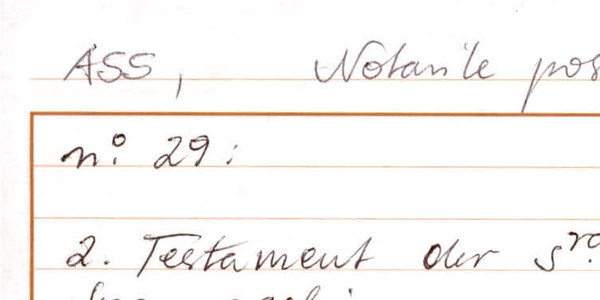 ASS, Notariële
n° 29:
2. Testament der